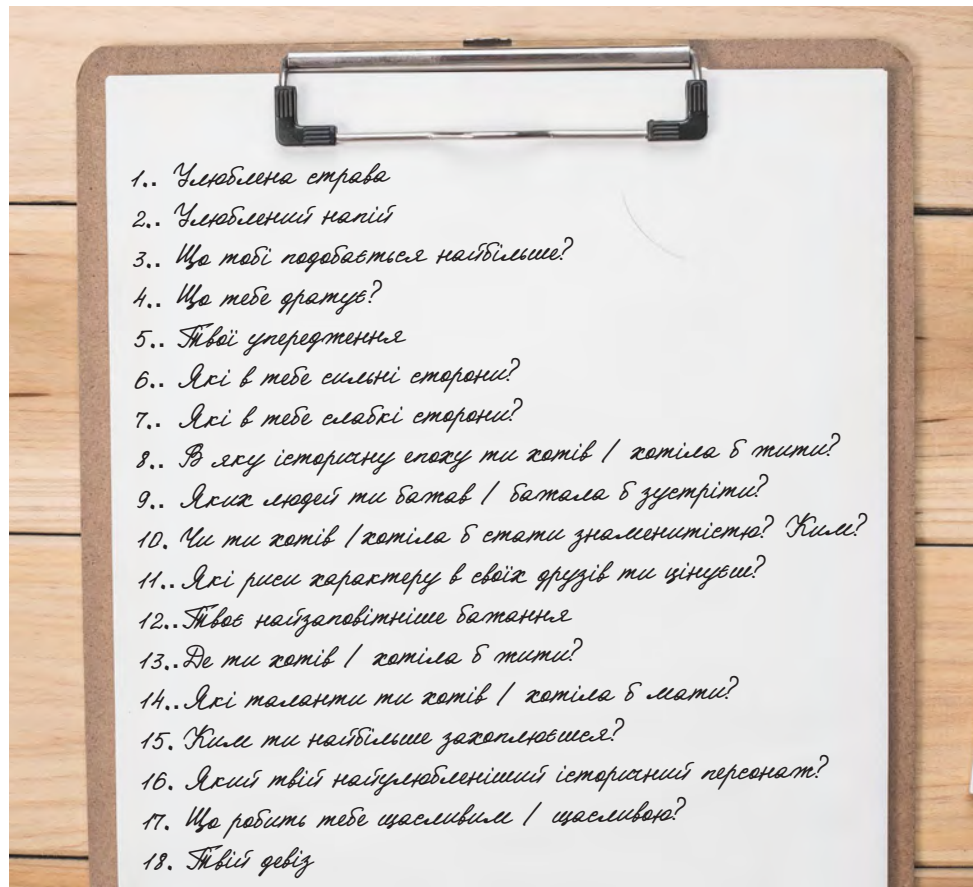 1.. Улюблена страва
2.. Улюблений напій
3.. Що тобі подобається найбільше?
4.. Що тебе дратує?
5.. Твої упередження
6.. Які в тебе сильні сторони?
7.. Які в тебе слабкі сторони?
8.. В яку історичну епоху ти хотів / хотіла б жити?
9.. Яких людей ти бажав / бажала б зустріти?
10. Чи ти хотів / хотіла б стати знаменитістю? Ким?
11.. Які риси характеру в своїх друзів ти цінуєш?
12.. Твоє найзаповітніше бажання
13.. Де ти хотів / хотіла б жити?
14.. Які таланти ти хотів / хотіла б мати?
15. Ким ти найбільше захоплюєшся?
16. Який твій найулюбленіший історичний персонаж?
17. Що робить тебе щасливим / щасливою?
18. Твій девіз